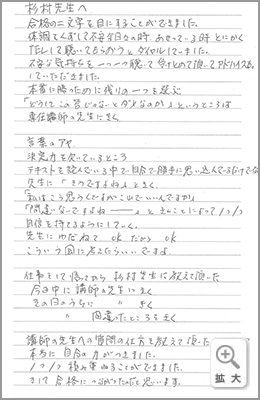 杉村先生へ
合格の二文字を目にすることができました。
体調をくずして不安な日々の時、あせっている時とにかく
TELして聴いてもらおうとダイヤルしていました。
不安な気持ちを一つ一つ聴いて受けとめて頂いてアドバイスを
していただきました。
本当に勝つために残りの一つを選ぶ
「どうしてこの答じゃないとダメなのか」というところは
専任講師の先生にきく
言葉のアヤ
決定力を欠いているところ
テキストを読んでいる中で自分で勝手に思い込んでいるだけでなく
先生に「そうですよね」ときく
「私はこう思うんですがこれでいいんですか」
「間違いなですよね――」ときくことによって1つ1つ
自信を持てるようにしていく。
先生にゆだねて OK だから OK
こういう風に考えたらいいですよ。
仕事をして帰ってから 杉村先生に教えて頂いた
今日中に 講師の先生にきく
その日のうちに 〃 きく
〃 間違ったところをきく
講師の先生への質問の仕方を教えて頂いた
本当に自分の力がつきました。
1つ1つ積み重ねることができました。
そして合格につながったなと思います。
拡大